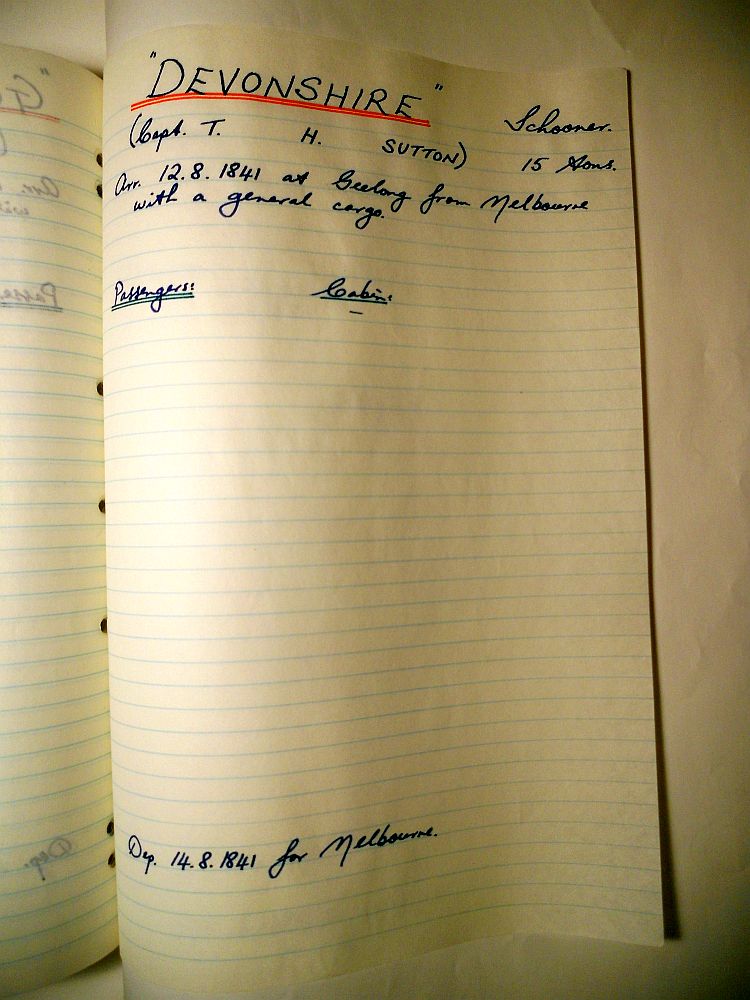 "DEVONSHIRE"
Schooner.
(Capt. T. H. SUTTON)
15 tons.
Arr. 12.8.1841 at Geelong from Melbourne
with a general cargo.
Passengers: Cabin:
–
Dep. 14.8.1841 for Melbourne.
"G
(
Arr.
wit
Passe
Dep.